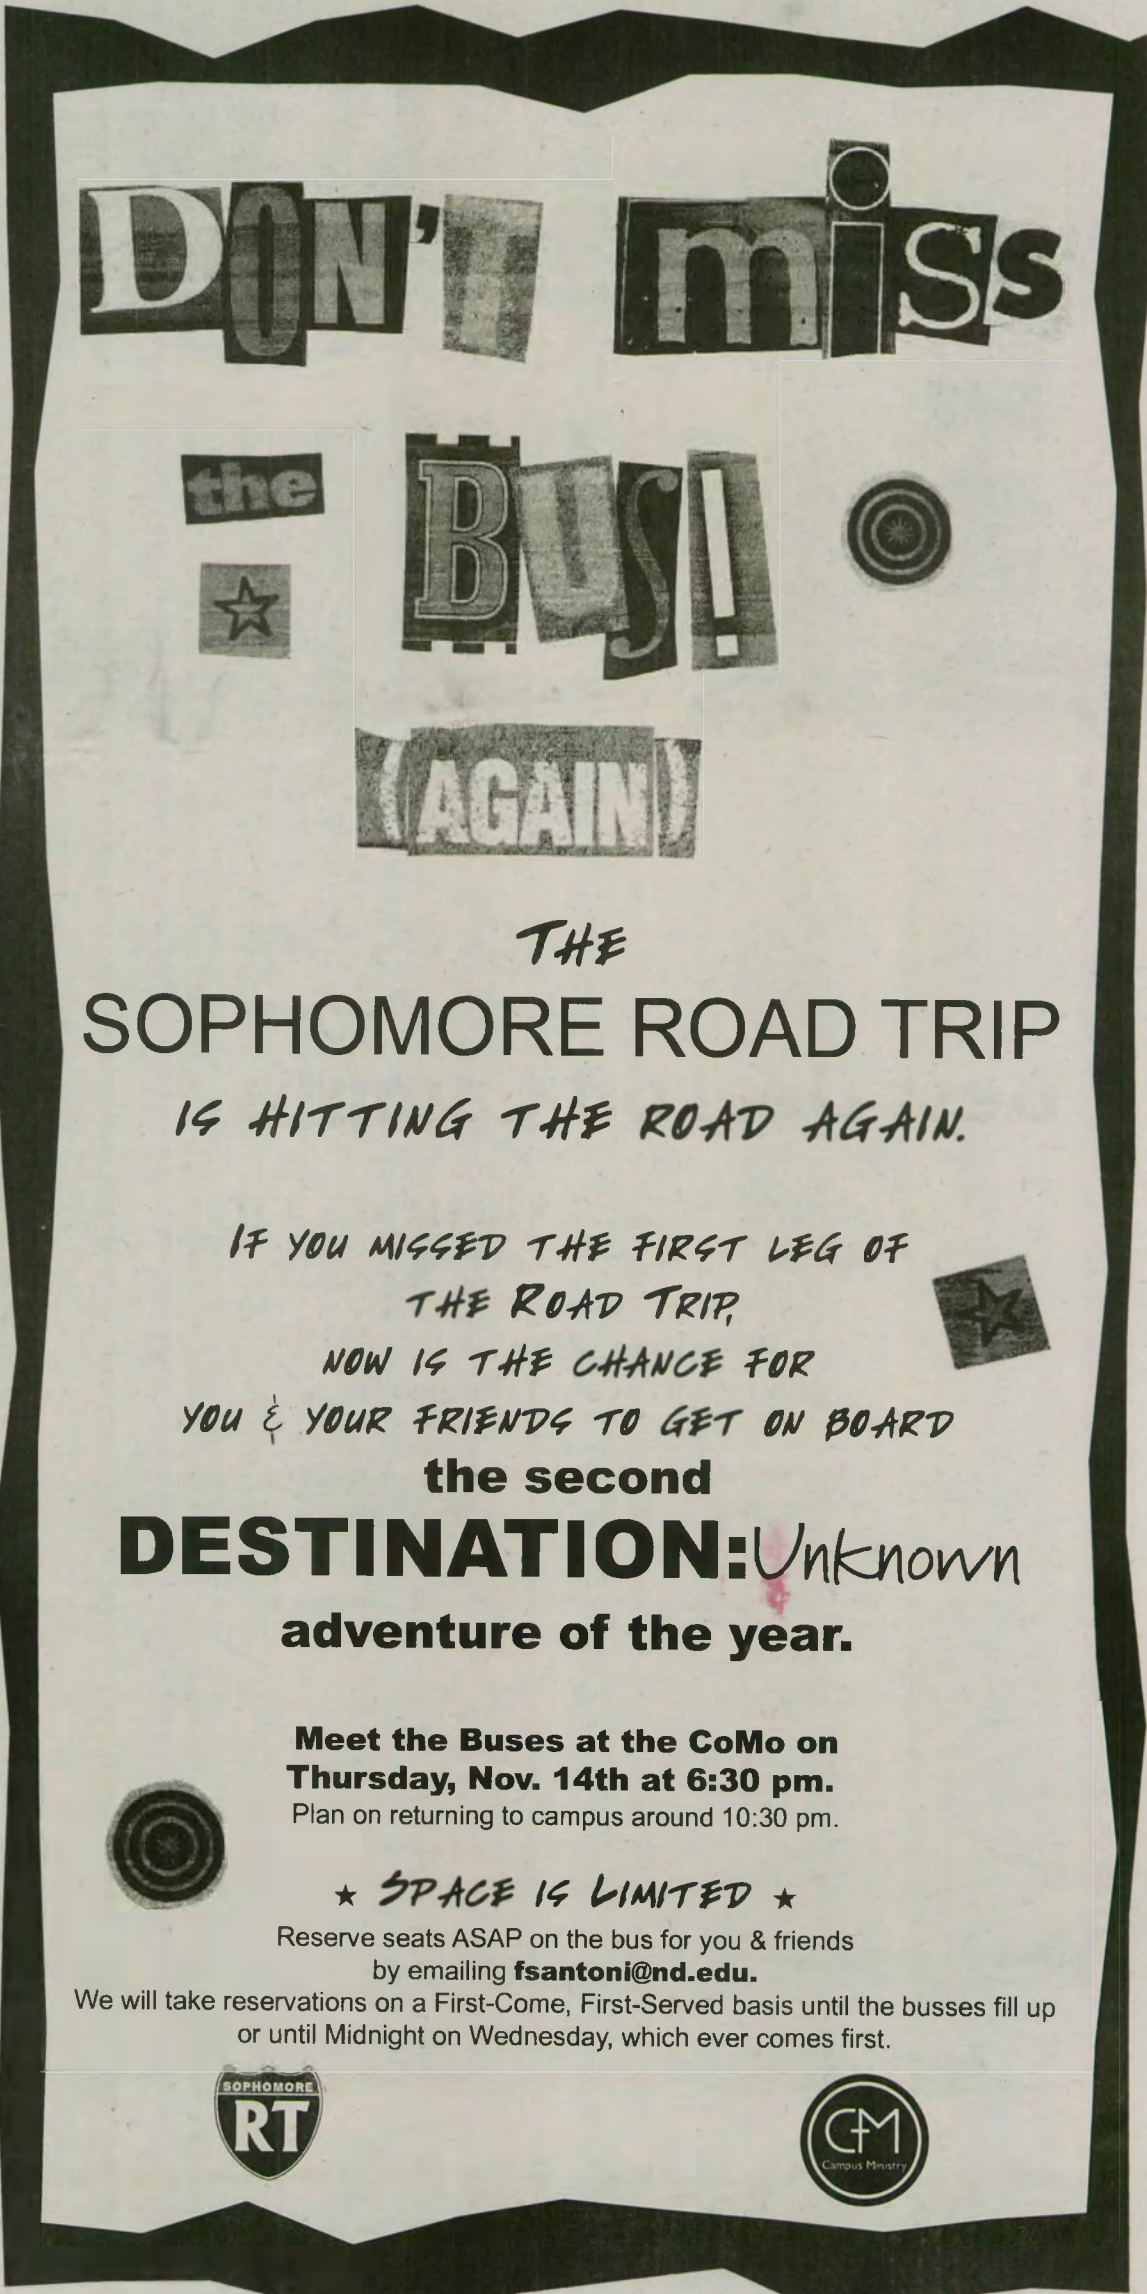 DON'T miss
the BUS!
(AGAIN)
THE
SOPHOMORE ROAD TRIP
IS HITTING THE ROAD AGAIN.
IF YOU MISSED THE FIRST LEG OF
THE ROAD TRIP,
NOW IS THE CHANCE FOR
YOU & YOUR FRIENDS TO GET ON BOARD
the second
DESTINATION:Unknown
adventure of the year.
Meet the Buses at the CoMo on
Thursday, Nov. 14th at 6:30 pm.
Plan on returning to campus around 10:30 pm.
★ SPACE IS LIMITED ★
Reserve seats ASAP on the bus for you & friends
by emailing fsantoni@nd.edu.
We will take reservations on a First-Come, First-Served basis until the busses fill up
or until Midnight on Wednesday, which ever comes first.
SOPHOMORE
RT
CM
Campus Ministry